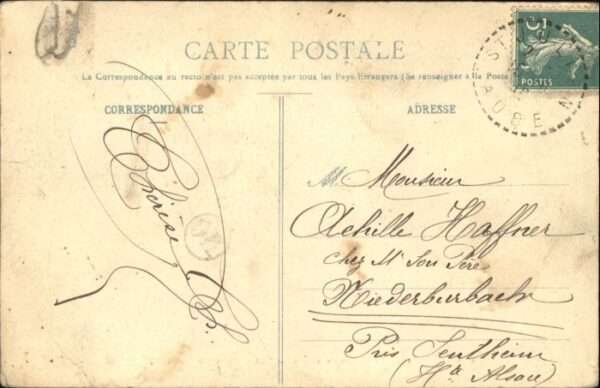 CARTE POSTALE
La Correspondance au recto n'est pas acceptée par tous les Pays Étrangers (Se renseigner à la Poste
CORRESPONDANCE
ADRESSE
5c
POSTES
ST
AUBE
M. Monsieur
Achille Haffner
chez Mr Son Père
Niederburbach
Près Sentheim
(Hte Alsace)